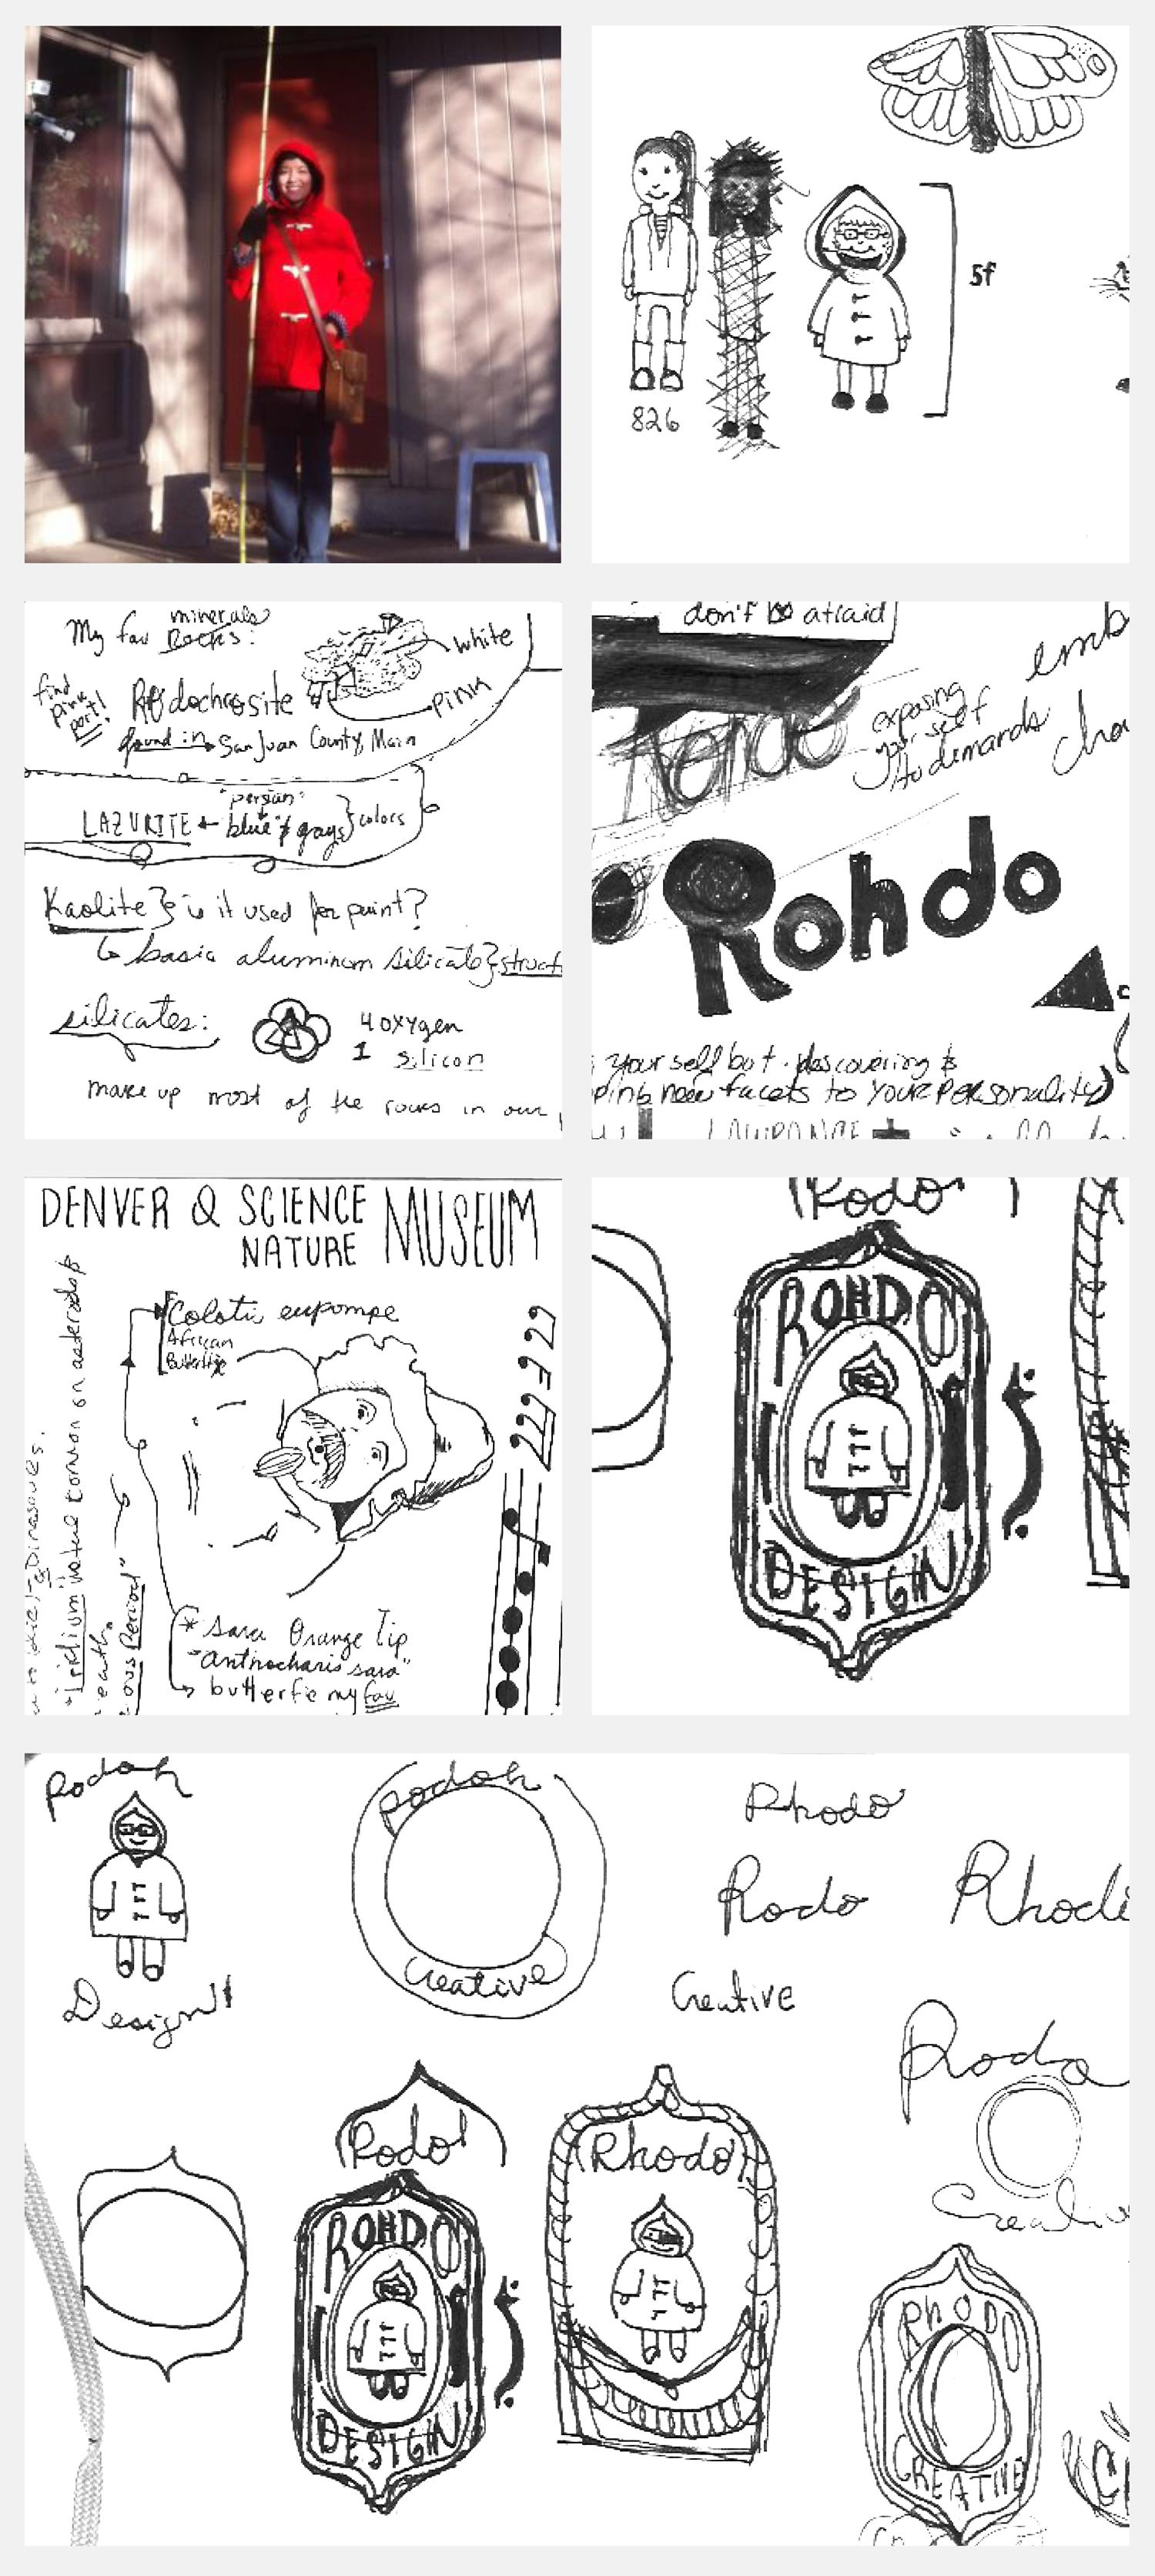 826
5f
My fav minerals
Rocks:
white
pink
find
pink
port!
Rhodochrosite
found in San Juan County, Main
"persian"
LAZURITE ← blue & grays } colors
Kaolite } is it used for paint?
↳ basic aluminum silicate } struct
silicates:
4 oxygen
1 silicon
make up most of the rocks in our
don't be afraid
emb
exposing
your self
to demands
cha
Rohdo
Rohdo
yourself but discovering &
ping new facets to your personality)
DENVER & SCIENCE MUSEUM
NATURE
Colotis eupompe
African
Butterflie
"iridium" metal common on asteroids
& Dinasoures.
earth
ous Period"
* Sara Orange Tip
"anthocharis sara"
butterfie my fav
Rodo
ROHDO
DESIGN
Rodoh
Design
Rodoh
Creative
Rhodo
Rodo
Rhodi
Creative
Rodo
Creative
Rodo
ROHDO
DESIGN
Rhodo
RHODO
CREATIVE